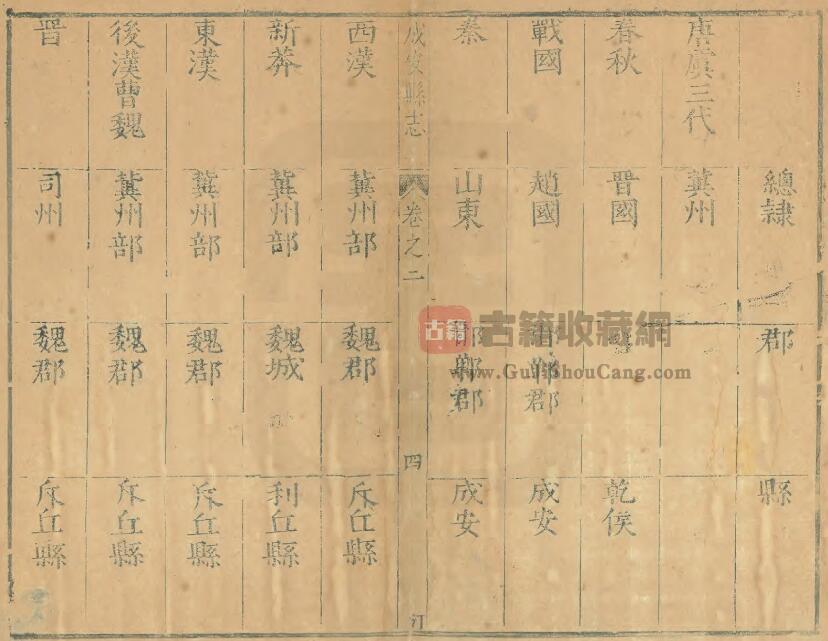 總隸 郡 縣
唐虞三代 冀州
春秋 晋國 乾侯
戰國 趙國 邯鄲郡 成安
秦 山東 邯鄲郡 成安
成安縣志 卷之二 四
西漢 冀州部 魏郡 斥丘縣
新莽 冀州部 魏城 利丘縣
東漢 冀州部 魏郡 斥丘縣
後漢曹魏 冀州部 魏郡 斥丘縣
晋 司州 魏郡 斥丘縣
古籍 古籍收藏網
www.GujiShouCang.com